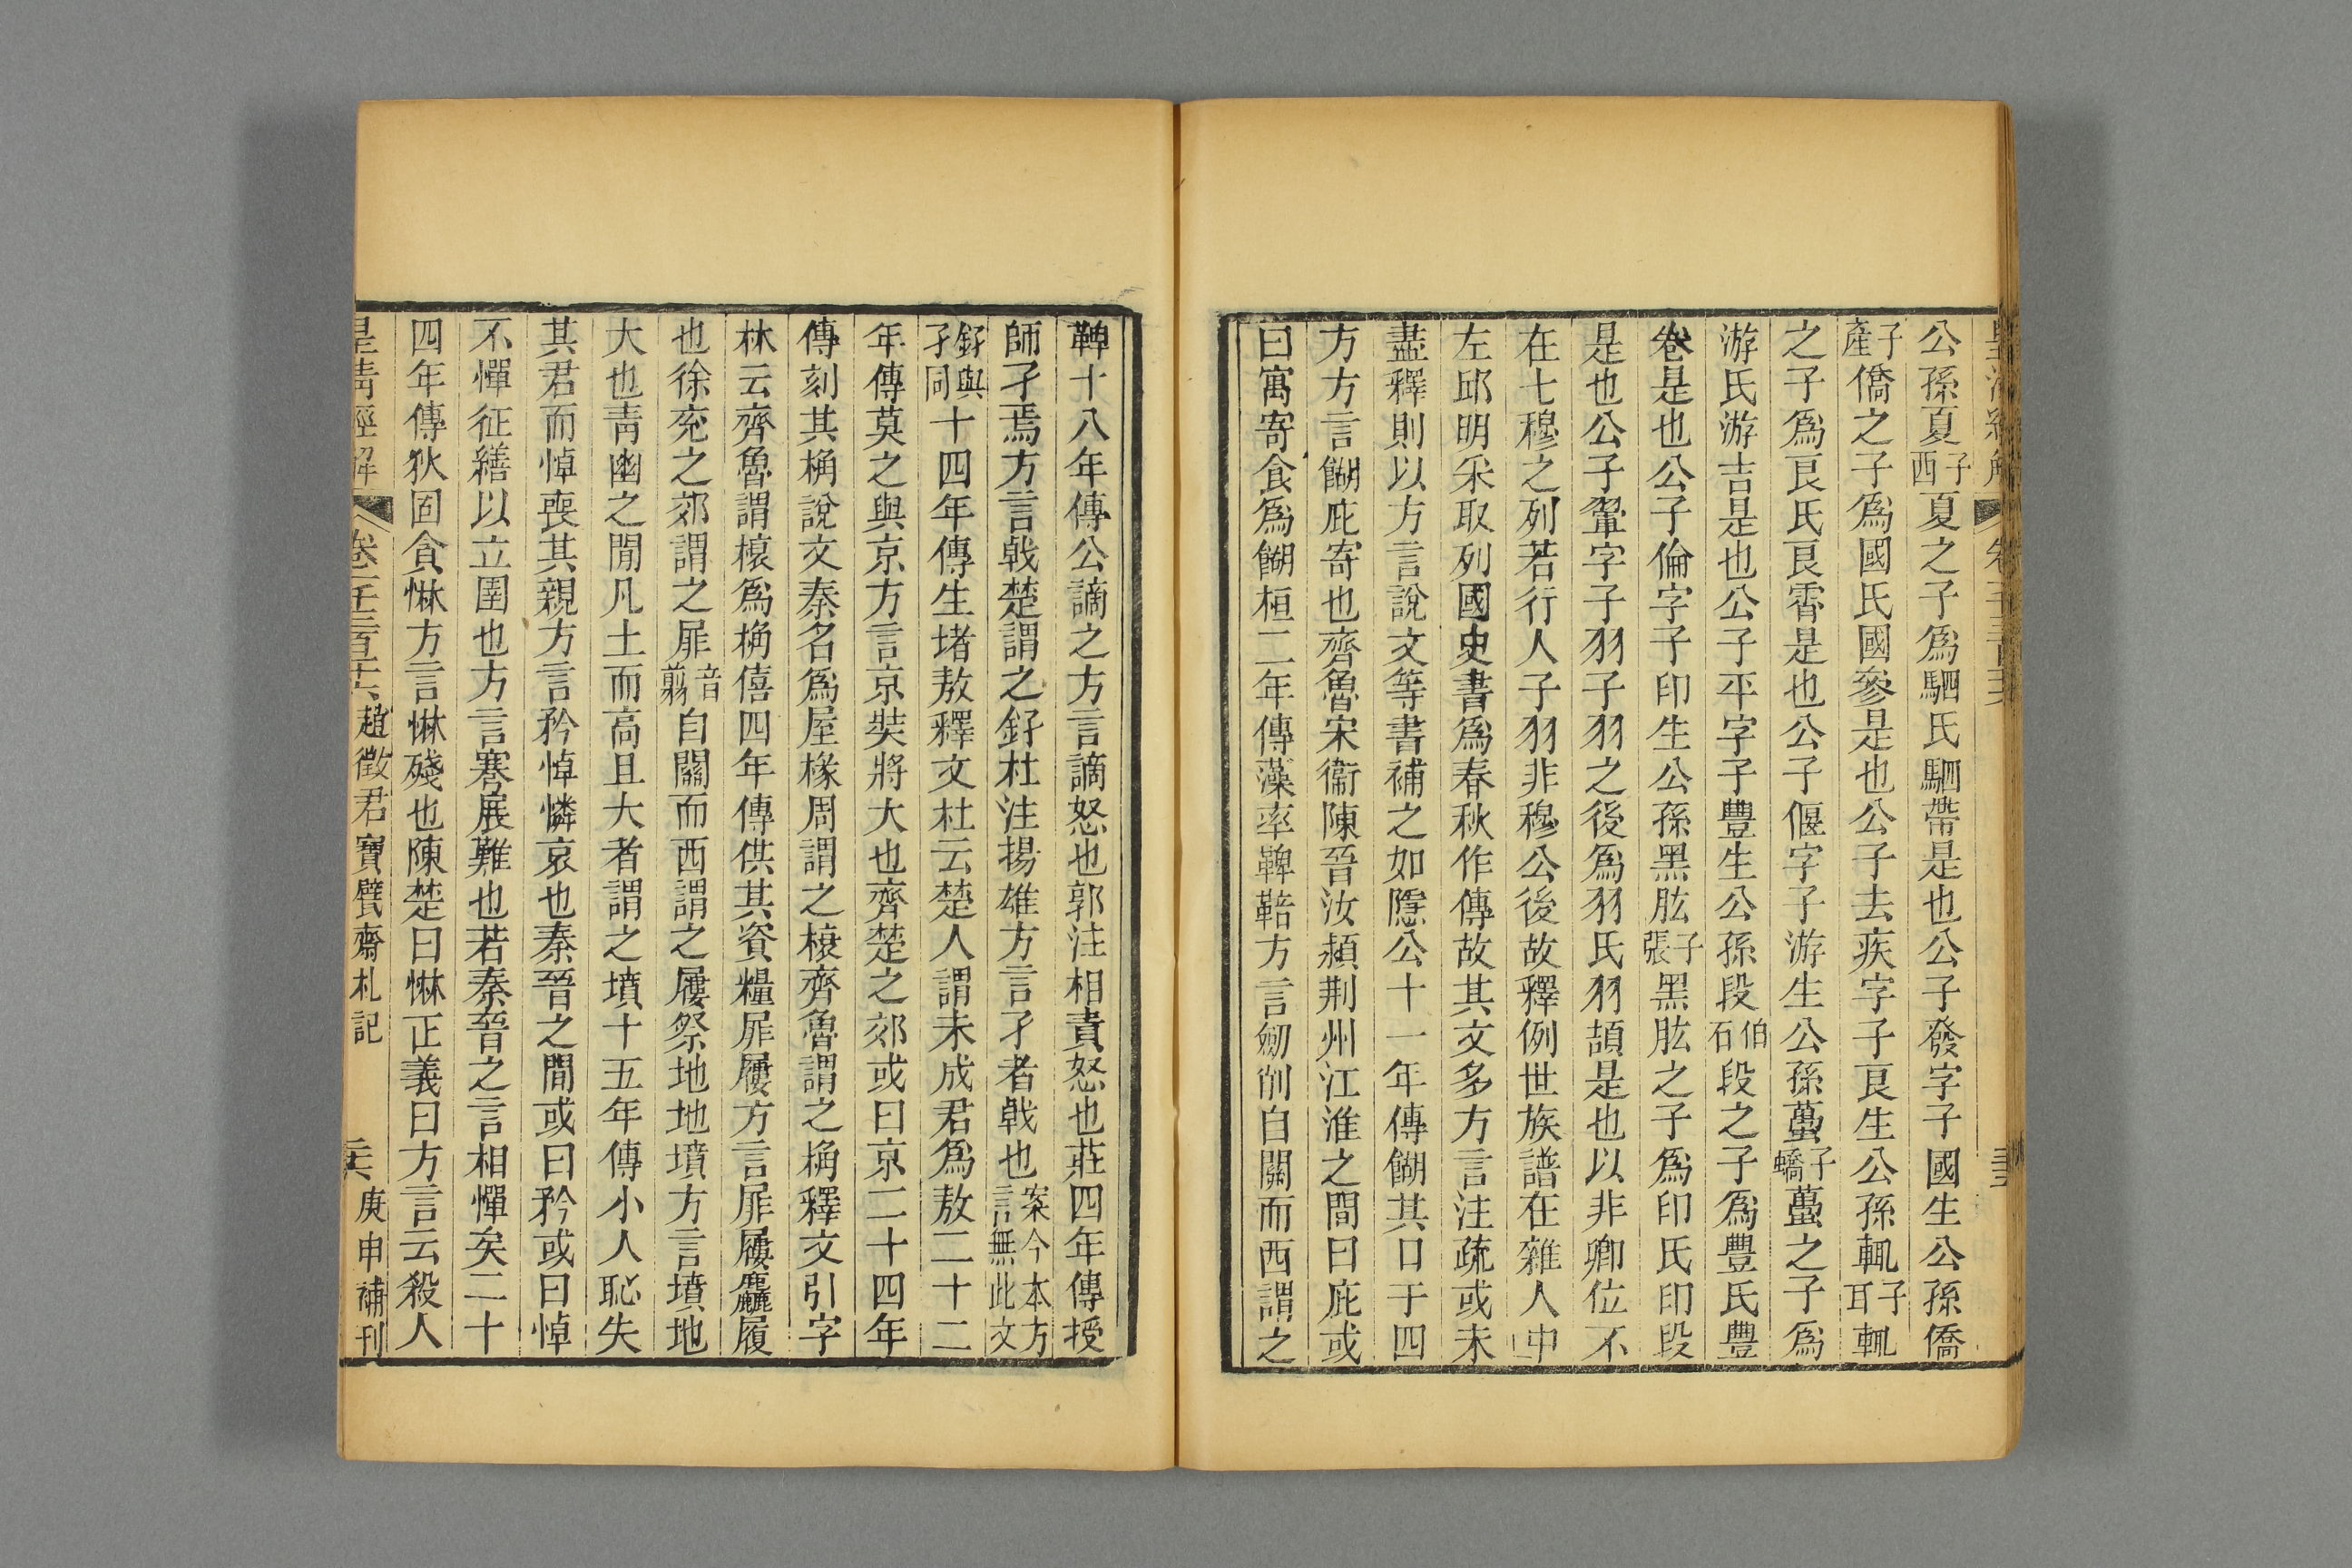 公孫夏子西夏之子爲駟氏駟帶是也公子發字子國生公孫僑
子產僑之子爲國氏國參是也公子去疾字子良生公孫輒子耳輒
之子爲良氏良霄是也公子偃字子游生公孫蠆子蟜蠆之子爲
游氏游吉是也公子平字子豐生公孫段伯石段之子爲豐氏豐
卷是也公子倫字子印生公孫黑肱子張黑肱之子爲印氏印段
是也公子翬字子羽子羽之後爲羽氏羽頡是也以非卿位不
在七穆之列若行人子羽非穆公後故釋例世族譜在雜人中
左邱明采取列國史書爲春秋作傳故其文多方言注疏或未
盡釋則以方言說文等書補之如隱公十一年傳餬其口于四
方方言餬庇寄也齊魯宋衞陳晉汝潁荆州江淮之間曰庇或
曰寓寄食爲餬桓二年傳藻率鞞鞛方言劒削自關而西謂之
鞞十八年傳公謫之方言謫怒也郭注相責怒也莊四年傳授
師孑焉方言戟楚謂之釨杜注揚雄方言孑者戟也案今本方言無此文
釨與孑同十四年傳生堵敖釋文杜云楚人謂未成君爲敖二十二
年傳莫之與京方言京奘將大也齊楚之郊或曰京二十四年
傳刻其桷說文秦名爲屋椽周謂之榱齊魯謂之桷釋文引字
林云齊魯謂榱爲桷僖四年傳供其資糧屝屨方言屝屨麤履
也徐兖之郊謂之屝音翦自關而西謂之屨祭地地墳方言墳地
大也靑幽之閒凡土而高且大者謂之墳十五年傳小人恥失
其君而悼喪其親方言矜悼憐哀也秦晉之間或曰矜或曰悼
不憚征繕以立圉也方言謇展難也若秦晉之言相憚矣二十
四年傳狄固貪惏方言惏殘也陳楚曰惏正義曰方言云殺人
皇清經解 卷一千三百十六 趙徵君寶甓齋札記 庚申補刊